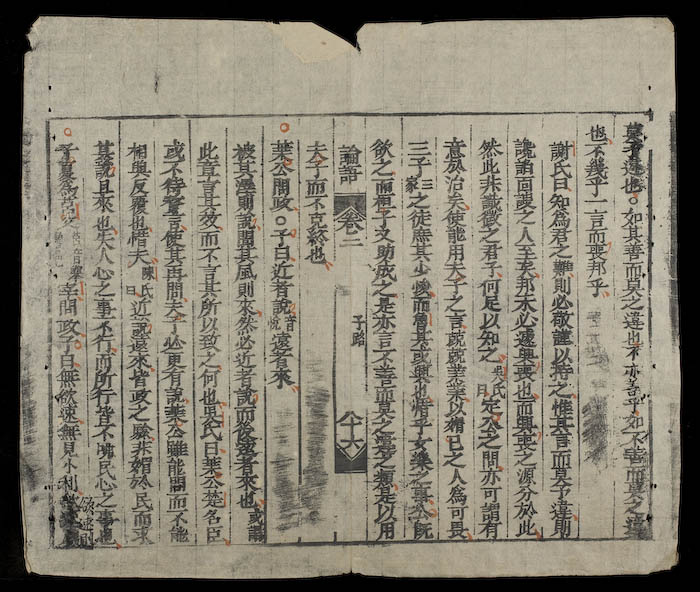 莫予違也如其善而莫之違也不亦善乎如不善而莫之違
也不幾乎一言而喪邦乎
謝氏曰知為君之難則必敬謹以持之惟其言而莫予違則
讒諂面諛之人至矣邦未必遽興喪也而興喪之源分於此
然此非識微之君子何足以知之吳氏曰定公之問亦可謂有
意於治矣使能用夫子之言兢兢業業以媚己之人為可畏
三子三家之徒庶其少悛而魯其或興也惜乎女樂之事公既
欲之而桓子又助成之是亦言不善而莫之違之類其以用
夫子而不克終也
論語 卷二 子路 八十六
葉公問政○子曰近者說音悅遠者來
被其澤則說聞其風則來然必近者說而後遠者來也或謂
此章言其效而不言其所以致之何也吳氏曰葉公楚名臣
或不待贅言使其再問夫子必更有說葉公雖能問而不能
相與反覆也惜夫陳氏曰近說遠來皆政之驗非媚於民而求
其說且來也失人心之事不行而所行皆不咈民心之事也
子夏為莒父宰問政子曰無欲速無見小利欲速則